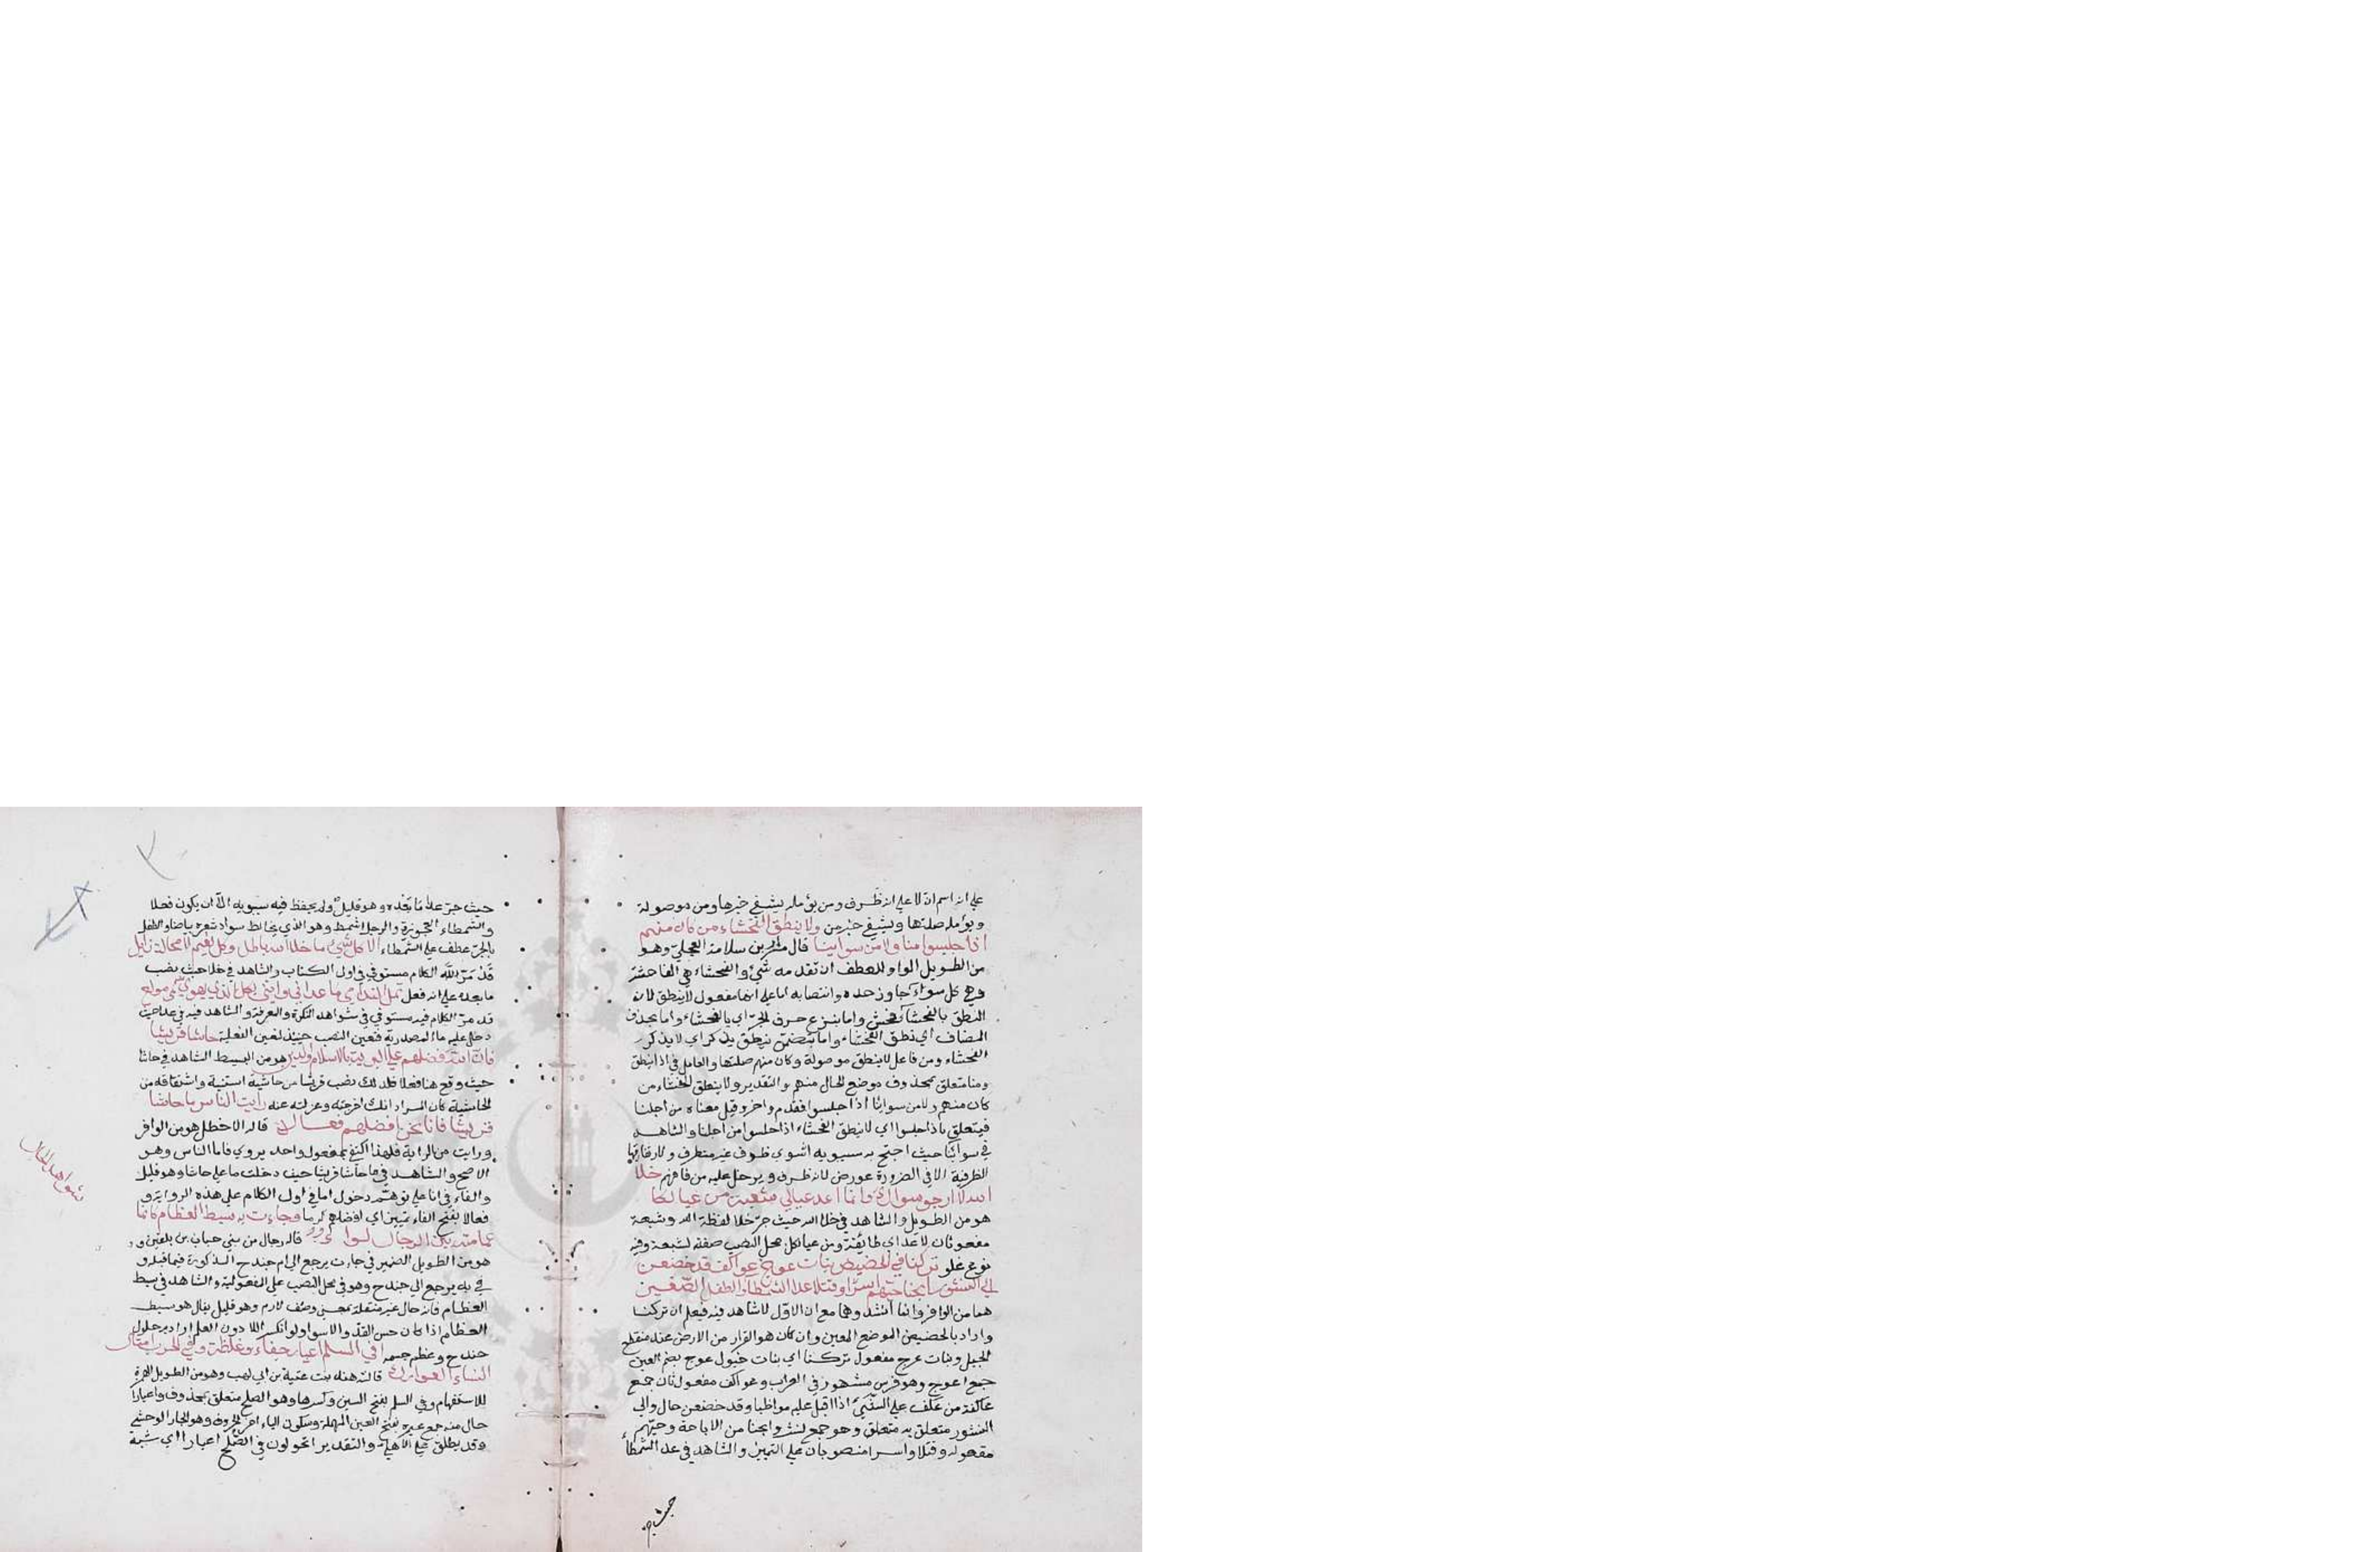 علي انه اسم ان لا علي انه ظرف ومن يؤمله يشفي خبرها ومن موصولة
ويؤمله صلتها ويشفي خبر من ولا ينطق الفحشاء من كان منهم
اذا جلسوا منا ولا من سواينا قال مرار بن سلامة العجلي وهو
من الطويل الواو للعطف ان تقدمه شي والفحشاء هي الفاحشة
وهي كل سوء جاوز حده وانتصابه اما علي انها مفعول لا ينطق لان
النطق بالفحشاء فحش واما بنزع حرف الجر اي بالفحشاء واما بحذف
المضاف اي نطق الفحشاء واما بتضمن ينطق يذكر اي لا يذكر
الفحشاء ومن فاعل لا ينطق موصولة وكان منهم صلتها والعامل في اذا ينطق
ومنا متعلق بمحذوف موضع الحال منهم والتقدير ولا ينطق الفحشاء من
كان منهم ولا من سوائنا اذا جلسوا فقدم واخر وقيل معناه من اجلنا
فيتعلق باذا جلسوا اي لا ينطق الفحشاء اذا جلسوا من اجلنا والشاهد
في سوائنا حيث احتج به سيبويه ان سوي ظرف غير متصرف ولا تفارقها
الظرفية الا في الضرورة عورض لانه ظرف ويدخل عليه من فافهم خلا
الله لا ارجو سواك وانما اعد عيالي شعبة من عيالكا
هو من الطويل والشاهد في خلا الله حيث جر خلا لفظة الله وشعبة
مفعول ثان لاعد اي طائفة ومن عيالكا في محل النصب صفة لشعبة وفيه
نوع غلو تركنا في الحضيض بنات عوج عواكف قد خضعن
الي النسور ابحنا حيهم اسرا وقتلا عدا الشمطاء والطفل الصغير
هما من الوافر وانما أنشد وهما مع ان الاول لا شاهد فيه فيعلم ان تركنا
واراد بالحضيض الموضع المعين وان كان هو القرار من الارض عند منقطع
الجبل وبنات عوج مفعول تركنا اي بنات خيول عوج بضم العين
جمع اعوج وهو فرس مشهور في العراب وعواكف مفعول ثان جمع
عاكفة من عكف علي الشي اذا اقبل عليه مواظبا وقد خضعن حال والي
النسور متعلق به متعلق وهو جمع نسر وابحنا من الاباحة وحيهم
مفعوله وقتلا واسرا منصوبان علي التمييز والشاهد في عدا الشمطاء
حيث جر
حيث جر عدا ما بعده وهو قليل ولم يحفظ فيه سيبويه الا ان يكون فعلا
والشمطاء العجوزة والرجل اشمط وهو الذي يخالط سواد شعره بياض والطفل
بالجر عطف علي الشمطاء الا كل شي ما خلا الله باطل وكل نعيم لا محالة زايل
قد مر الكلام مستوفي في اول الكتاب والشاهد في خلا حيث نصب
ما بعده علي انه فعل تمل الندامي ما عداني وانني بكل الذي يهوي نديمي مولع
قد مر الكلام فيه مستوفي في شواهد النكرة والمعرفة والشاهد فيه في عدا حيث
دخل عليه ما المصدرية فتعين النصب حينئذ لتعين الفعلية حاشا قريشا
فان الله فضلهم علي البرية بالاسلام والدين هو من البسيط الشاهد في حاشا
حيث وقع هنا فعلا فلذلك نصب قريشا من حاشية استثنية واشتقاقه من
الحاشية كان المراد انك اخرجته وعزلته عنه رايت الناس ما حاشا
قريشا فانا نحن افضلهم فعالا قاله الاخطل هو من الوافر
ورايت من الراية فلهذا اكتفي بمفعول واحد يروي فاما الناس وهو
الاصح والشاهد في ما حاشا قريشا حيث دخلت ما علي حاشا وهو قليل
والفاء في انا علي توهم دخول اما في اول الكلام علي هذه الرواية و
فعالا بفتح الفاء تمييز اي افضلهم كرما وجاءت به سبط العظام كانما
عمامته بين الرجال لواء قاله رجال من بني حباب بن بلقين و
هو من الطويل الضمير في جاءت يرجع الي ام حندج المذكورة فيما قبله و
في به يرجع الي حندج وهو في محل النصب علي المفعولية والشاهد في سبط
العظام فانه حال غير منتقلة بمعني وصف لازم وهو قليل يقال هو سبط
العظام اذا كان حسن القد والاسوا ولواء بكسر اللام دون العلم اراد به طول
حندج وعظم جسمه افي السلم اعيار جفاء وغلظة وفي الحرب امثال
النساء العوارك قالته هند بنت عتبة بن ابي لهب وهو من الطويل الهمزة
للاستفهام وفي السلم بفتح السين وكسرها وهو الصلح متعلق بمحذوف واعيارا
حال منه جمع عير بفتح العين المهملة وسكون الياء اخر الحروف وهو الحمار الوحشي
وقد يطلق علي الاهلي والتقدير اتحولون في الصلح اعيارا اي شبه
شواهد الحال